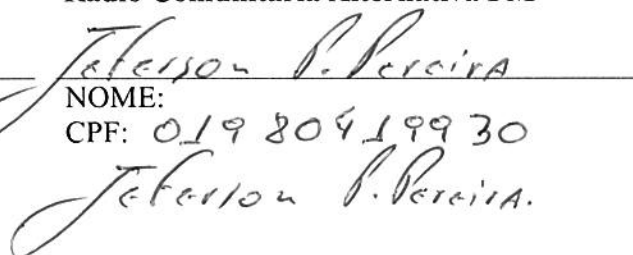 Jeferson P. Pereira
NOME:
CPF: 019 804199 30
Jeferson P. Pereira.